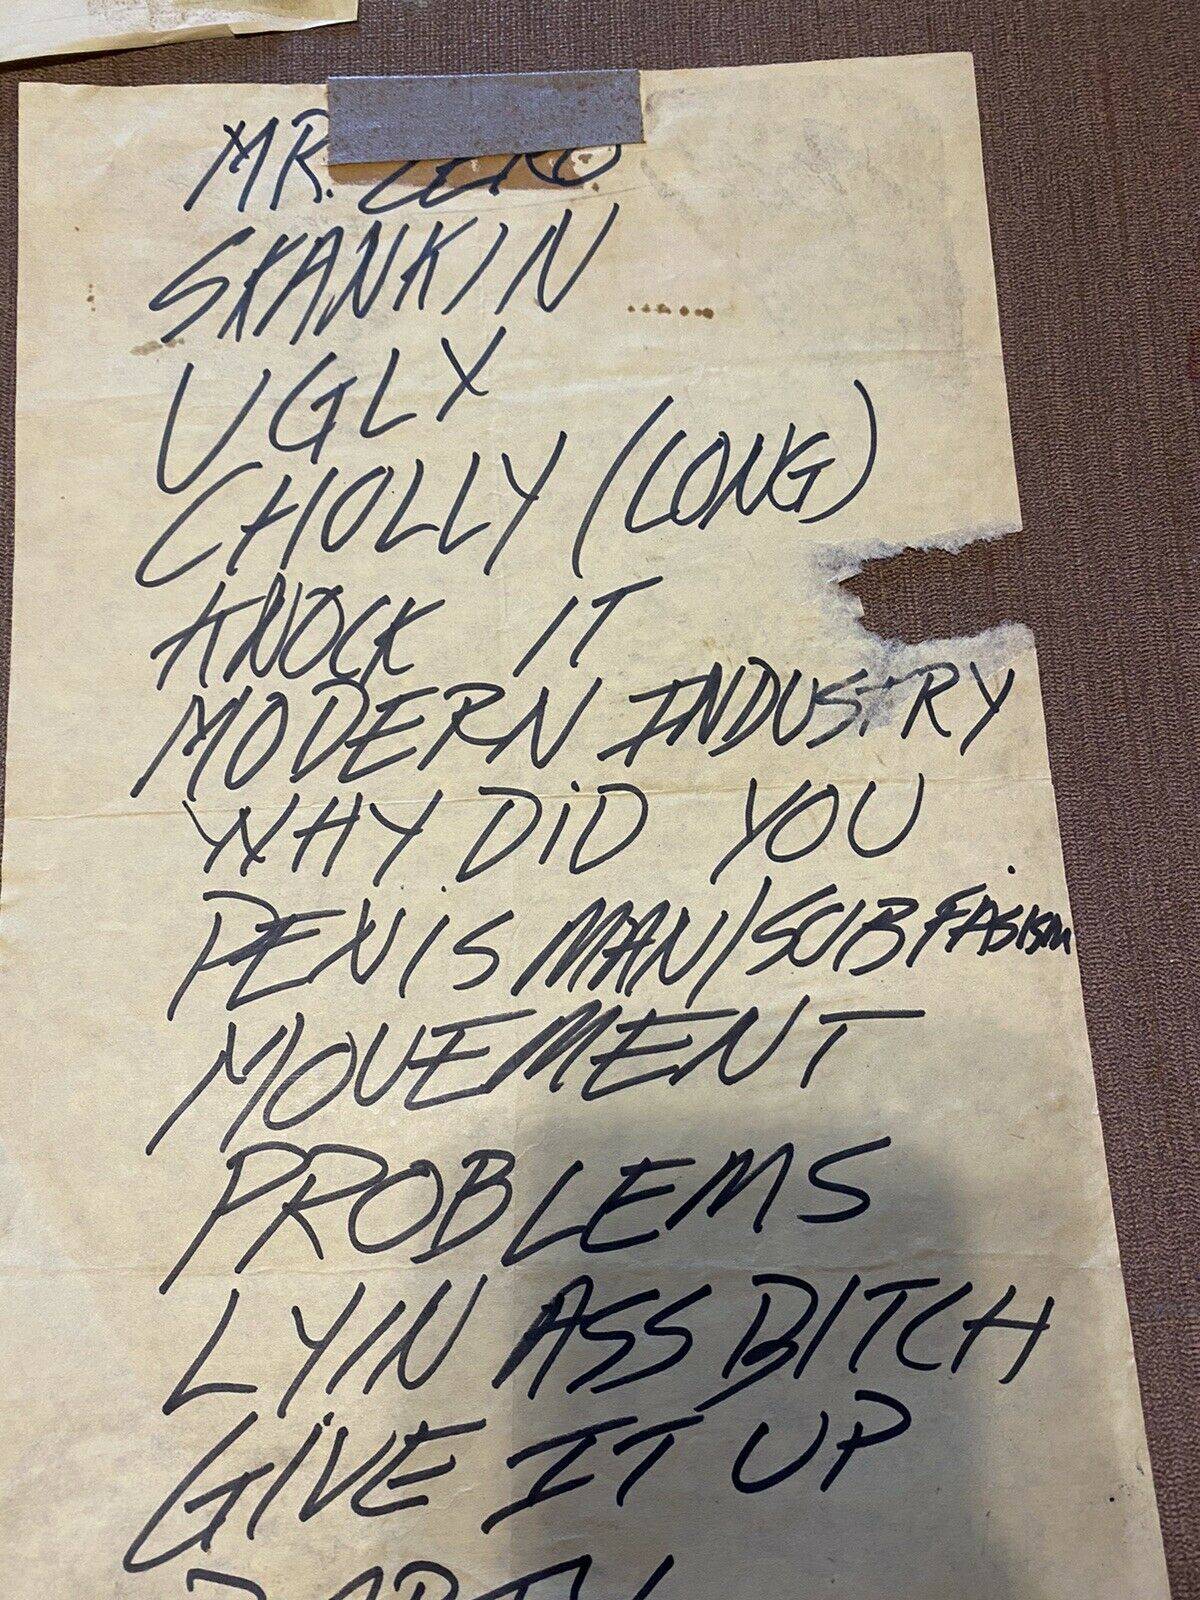 MR. ZERO
SKANKIN
UGLY
CHOLLY (LONG)
KNOCK IT
MODERN INDUSTRY
WHY DiD YOU
PENiS MAN/SUBFASISM
MOVEMENT
PROBLEMS
LYIN ASS BITCH
GiVE IT UP
PARTY